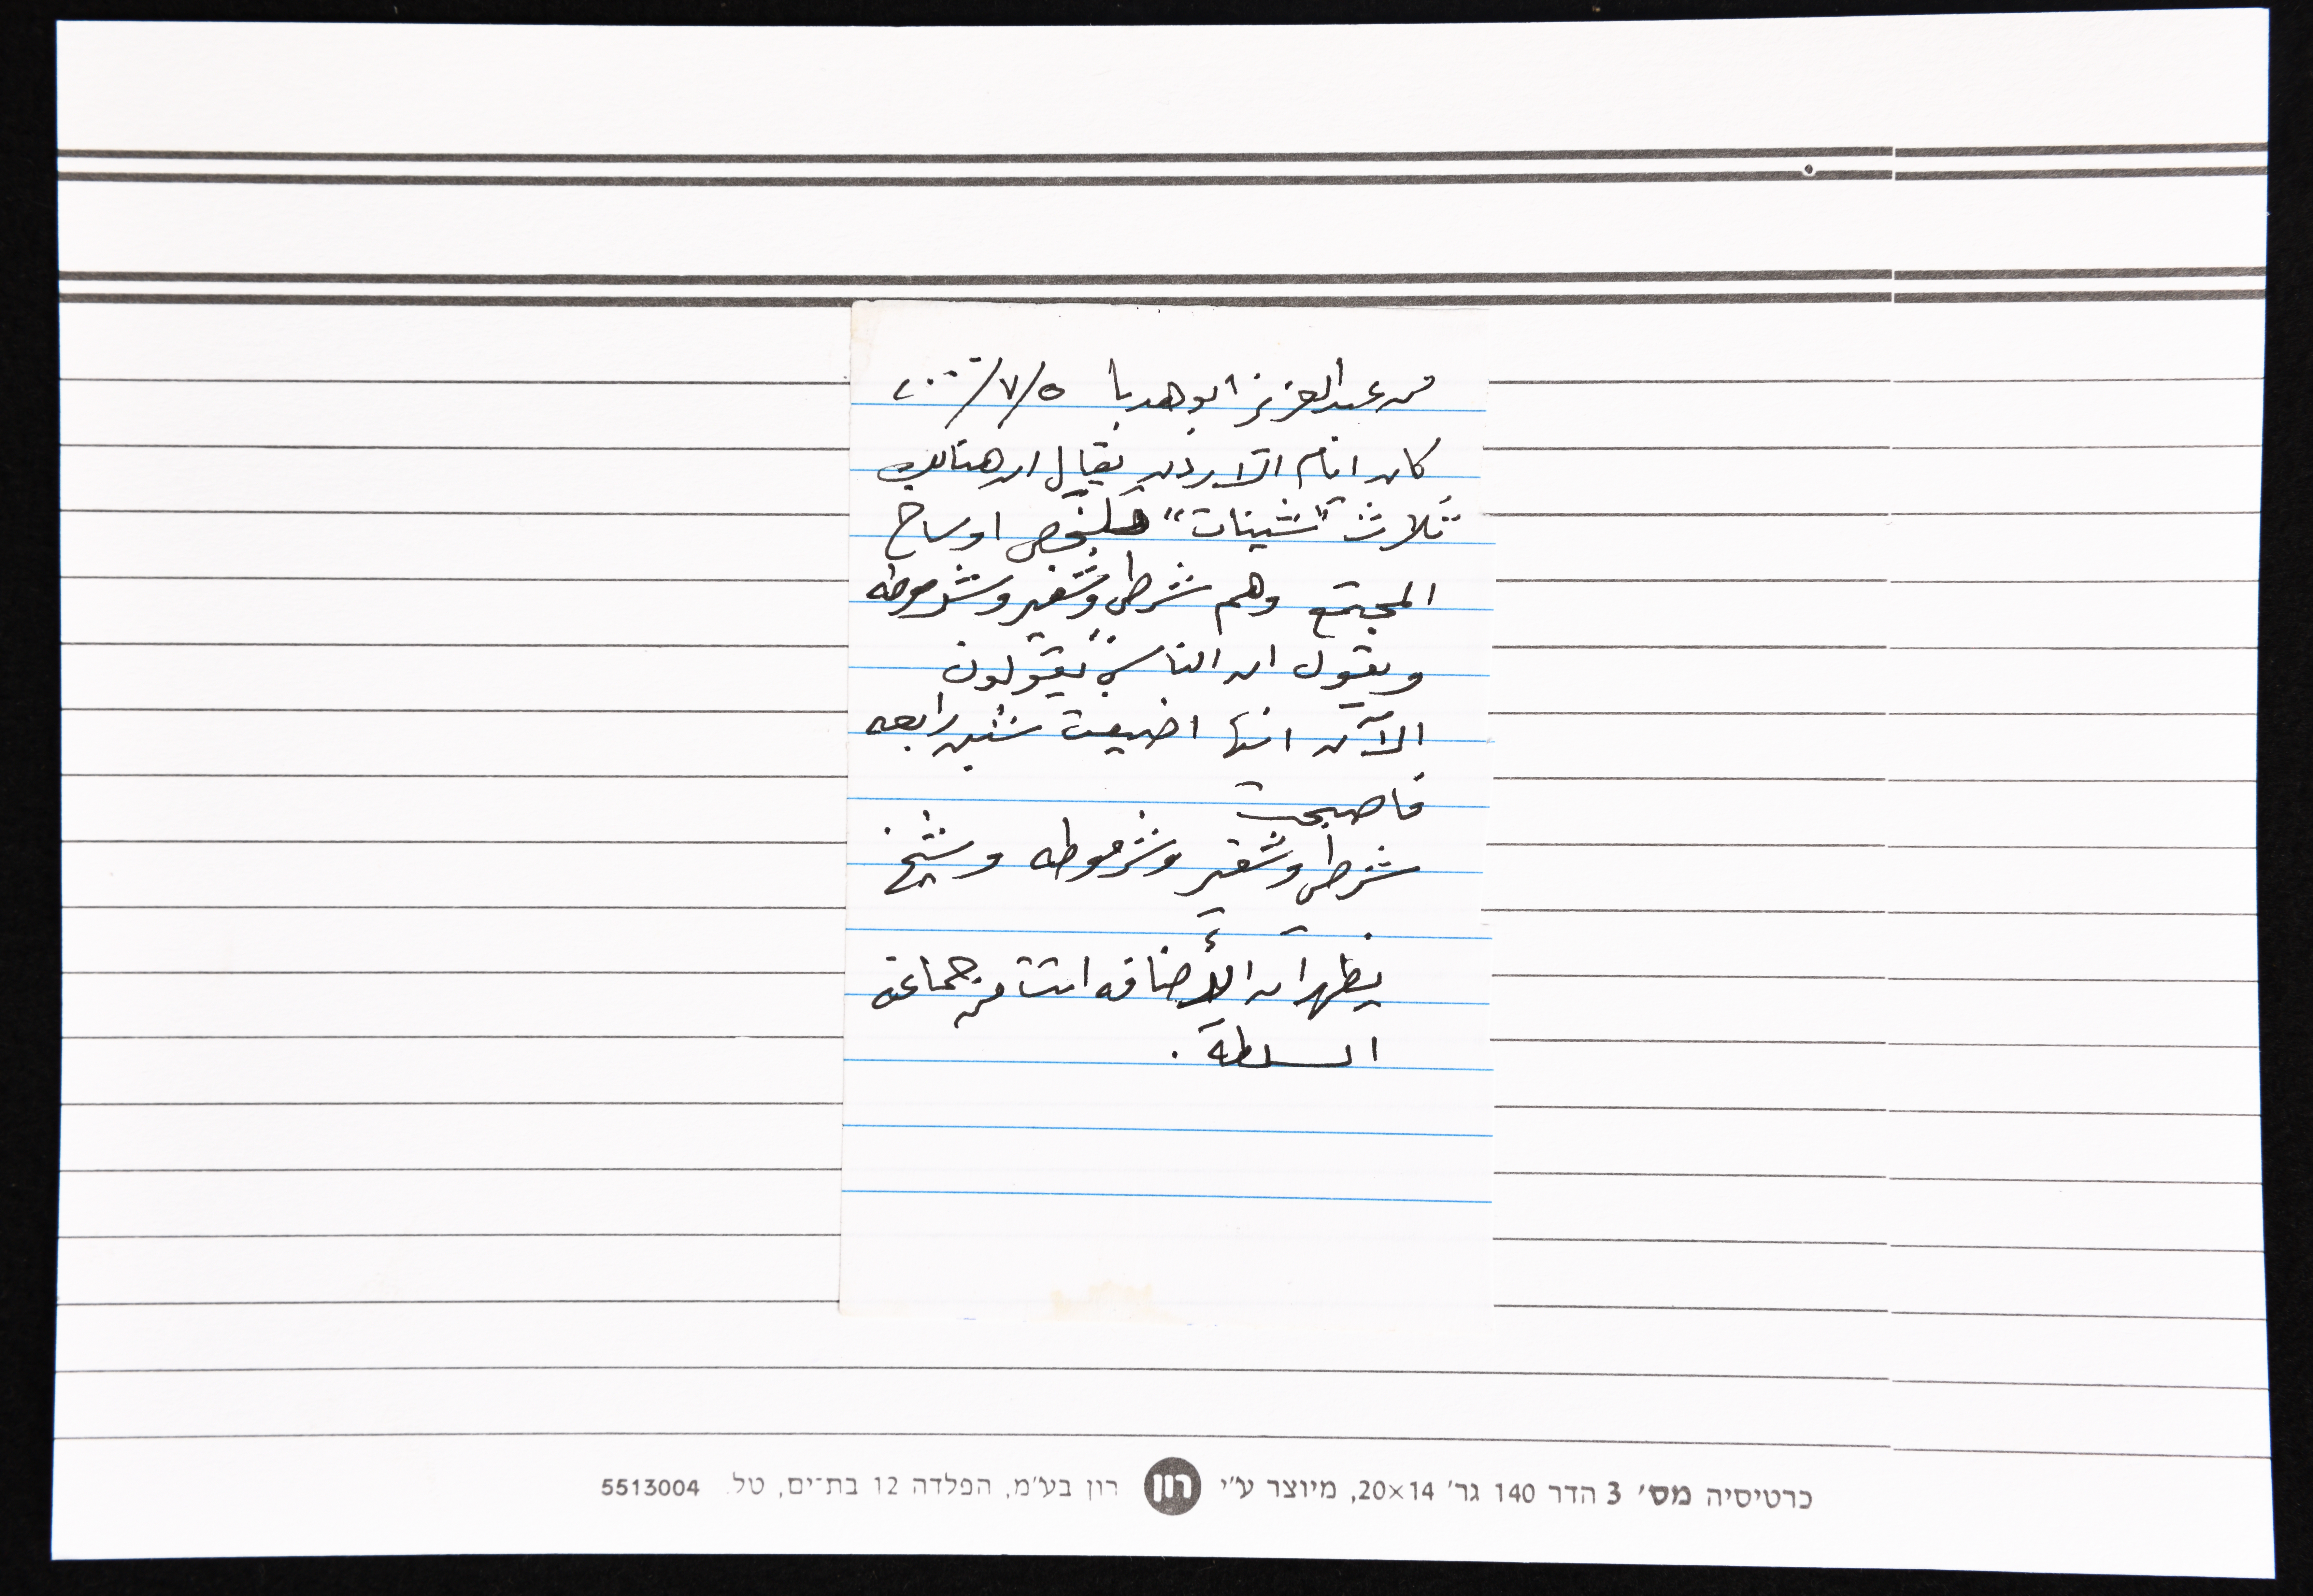 من عبدالعزيز ابو هدبا ٥/٧/٢٠٠٠
كان ايام الاردن يقال ان هنالك
ثلاث "شينات" تلخص اوساخ
المجتمع وهم شرطي وشفير وشرموطه
ويقول ان الناس يقولون
الآن انها اضيفت شين رابعه
فاصبحت
شرطي وشفير وشرموطه وشيخ
يظهر ان الأضافه اتت من جماعة
السلطة.
כרטיסיה מס׳ 3 הדר 140 גר׳ 20×14, מיוצר ע״י רון רון בע״מ, הפלדה 12 בת־ים, טל. 5513004